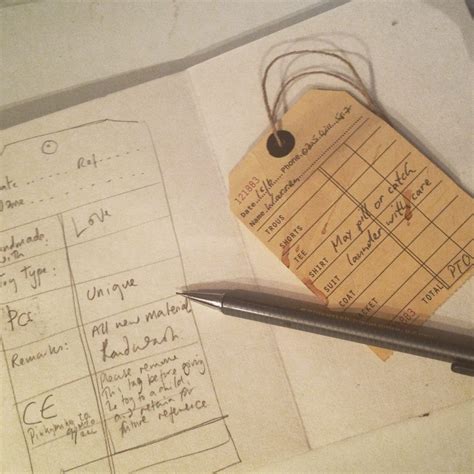 Ref.....
Love
Toy Type:
Unique
PCs
All new material
Handwash
Remarks:
Please remove
this tag before giving
to toy to a child
and retain for
future reference
CE
121883
Date
Phone
Name Warren
TROUS
SHORTS
TEE
SHIRT May pill or catch
SUIT launder with care
COAT
JACKET
TOTAL PTO